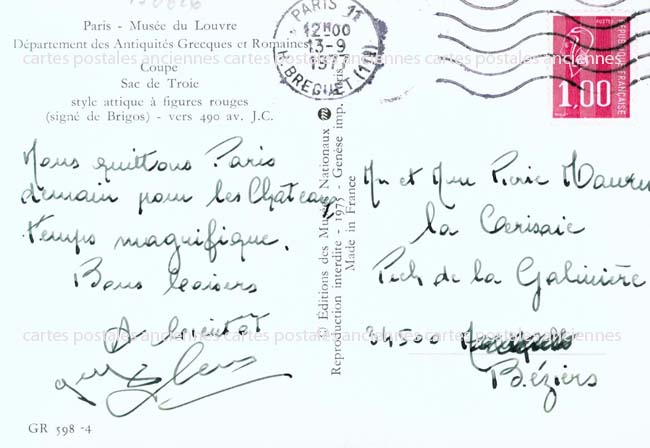 Paris - Musée du Louvre
Département des Antiquités Grecques et Romaines
Coupe
Sac de Troie
style attique à figures rouges
(signé de Brigos) - vers 490 av. J.C.
Nous quittons Paris
demain pour les Châteaux
temps magnifique.
Bons baisers
A bientôt
GR 598 -4
© Éditions des Musées Nationaux
Reproduction interdite - 1975 - Genèse imp. Paris
Made in France
PARIS 11
12H00
13-9
1977
R. BREGUET (11E)
POSTES
REPUBLIQUE FRANÇAISE
1,00
Mr et Mme Pierre
la Cerisaie
Pech de la Galinière
34500
Béziers
cartes postales anciennes cartes postales anciennes
cartes postales anciennes cartes postales anciennes